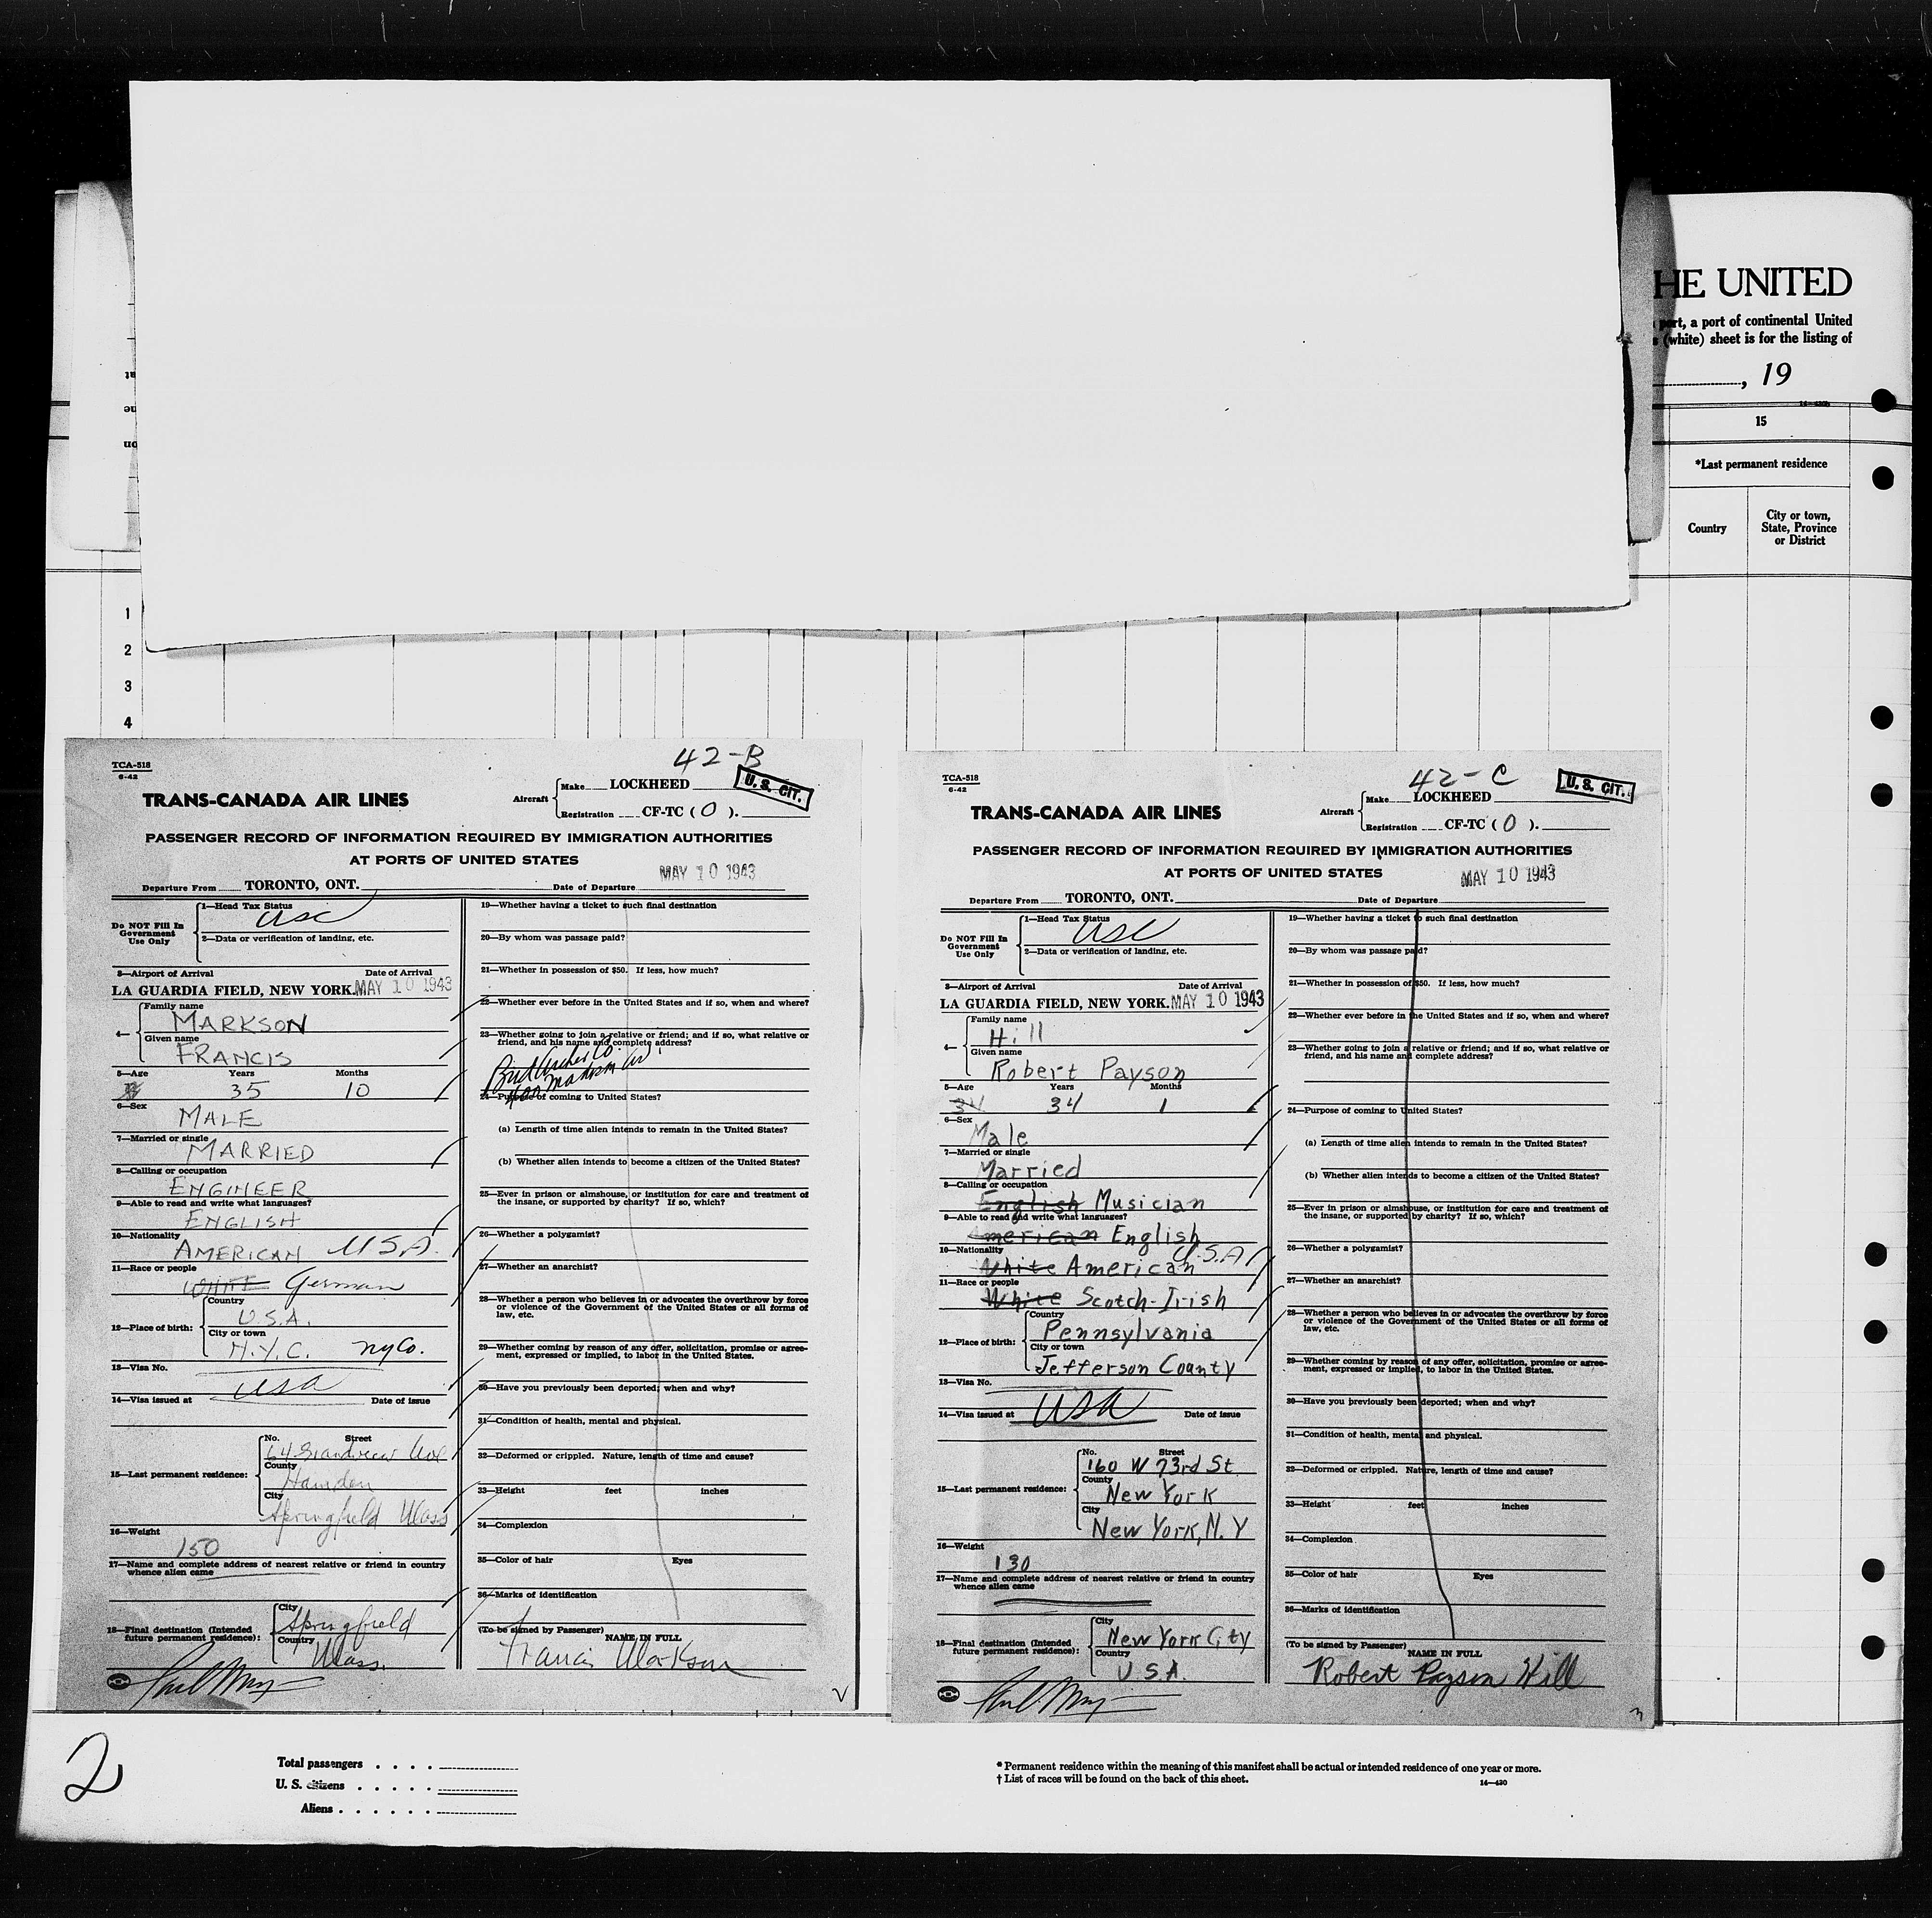 HE UNITED
port, a port of continental United
(white) sheet is for the listing of
, 19
15
*Last permanent residence
Country
City or town,
State, Province
or District
1
2
3
4
42-B
TCA-518
6-42
TRANS-CANADA AIR LINES
Aircraft
Make LOCKHEED
U. S. CIT.
Registration CF-TC ( O ).
PASSENGER RECORD OF INFORMATION REQUIRED BY IMMIGRATION AUTHORITIES
AT PORTS OF UNITED STATES
MAY 10 1943
Departure From TORONTO, ONT. Date of Departure
Do NOT Fill In
Government
Use Only
1—Head Tax Status
USC
2—Data or verification of landing, etc.
3—Airport of Arrival Date of Arrival
LA GUARDIA FIELD, NEW YORK. MAY 10 1943
4—
Family name
MARKSON
Given name
FRANCIS
5—Age Years Months
35 10
6—Sex
MALE
7—Married or single
MARRIED
8—Calling or occupation
ENGINEER
9—Able to read and write what languages?
ENGLISH
10—Nationality
AMERICAN USA.
11—Race or people
WHITE German
12—Place of birth:
Country
U.S.A.
City or town
N.Y.C. NYCo.
13—Visa No.
USA
14—Visa issued at Date of issue
15—Last permanent residence:
No. Street
64
County
Hamden
City
Springfield Mass
16—Weight
150
17—Name and complete address of nearest relative or friend in country
whence alien came
18—Final destination (Intended
future permanent residence):
City
Springfield
Country
Mass.
19—Whether having a ticket to such final destination
20—By whom was passage paid?
21—Whether in possession of $50. If less, how much?
22—Whether ever before in the United States and if so, when and where?
23—Whether going to join a relative or friend; and if so, what relative or
friend, and his name and complete address?
Bird Archer Co.
400 Madison Av.
24—Purpose of coming to United States?
(a) Length of time alien intends to remain in the United States?
(b) Whether alien intends to become a citizen of the United States?
25—Ever in prison or almshouse, or institution for care and treatment of
the insane, or supported by charity? If so, which?
26—Whether a polygamist?
27—Whether an anarchist?
28—Whether a person who believes in or advocates the overthrow by force
or violence of the Government of the United States or all forms of
law, etc.
29—Whether coming by reason of any offer, solicitation, promise or agree-
ment, expressed or implied, to labor in the United States.
30—Have you previously been deported; when and why?
31—Condition of health, mental and physical.
32—Deformed or crippled. Nature, length of time and cause?
33—Height feet inches
34—Complexion
35—Color of hair Eyes
36—Marks of identification
(To be signed by Passenger)
NAME IN FULL
Francis Markson
42-C
TCA-518
6-42
TRANS-CANADA AIR LINES
Aircraft
Make LOCKHEED
U. S. CIT.
Registration CF-TC ( O ).
PASSENGER RECORD OF INFORMATION REQUIRED BY IMMIGRATION AUTHORITIES
AT PORTS OF UNITED STATES
MAY 10 1943
Departure From TORONTO, ONT. Date of Departure
Do NOT Fill In
Government
Use Only
1—Head Tax Status
USC
2—Data or verification of landing, etc.
3—Airport of Arrival Date of Arrival
LA GUARDIA FIELD, NEW YORK. MAY 10 1943
4—
Family name
Hill
Given name
Robert Payson
5—Age Years Months
34 34 1
6—Sex
Male
7—Married or single
Married
8—Calling or occupation
English Musician
9—Able to read and write what languages?
American English
10—Nationality
White American U.S.A
11—Race or people
White Scotch-Irish
12—Place of birth:
Country
Pennsylvania
City or town
Jefferson County
13—Visa No.
USA
14—Visa issued at Date of issue
15—Last permanent residence:
No. Street
160 W 73rd St
County
New York
City
New York, N.Y
16—Weight
130
17—Name and complete address of nearest relative or friend in country
whence alien came
18—Final destination (Intended
future permanent residence):
City
New York City
Country
U.S.A.
19—Whether having a ticket to such final destination
20—By whom was passage paid?
21—Whether in possession of $50. If less, how much?
22—Whether ever before in the United States and if so, when and where?
23—Whether going to join a relative or friend; and if so, what relative or
friend, and his name and complete address?
24—Purpose of coming to United States?
(a) Length of time alien intends to remain in the United States?
(b) Whether alien intends to become a citizen of the United States?
25—Ever in prison or almshouse, or institution for care and treatment of
the insane, or supported by charity? If so, which?
26—Whether a polygamist?
27—Whether an anarchist?
28—Whether a person who believes in or advocates the overthrow by force
or violence of the Government of the United States or all forms of
law, etc.
29—Whether coming by reason of any offer, solicitation, promise or agree-
ment, expressed or implied, to labor in the United States.
30—Have you previously been deported; when and why?
31—Condition of health, mental and physical.
32—Deformed or crippled. Nature, length of time and cause?
33—Height feet inches
34—Complexion
35—Color of hair Eyes
36—Marks of identification
(To be signed by Passenger)
NAME IN FULL
Robert Payson Hill
2
Total passengers
U. S. citizens
Aliens
* Permanent residence within the meaning of this manifest shall be actual or intended residence of one year or more.
† List of races will be found on the back of this sheet.
14—430